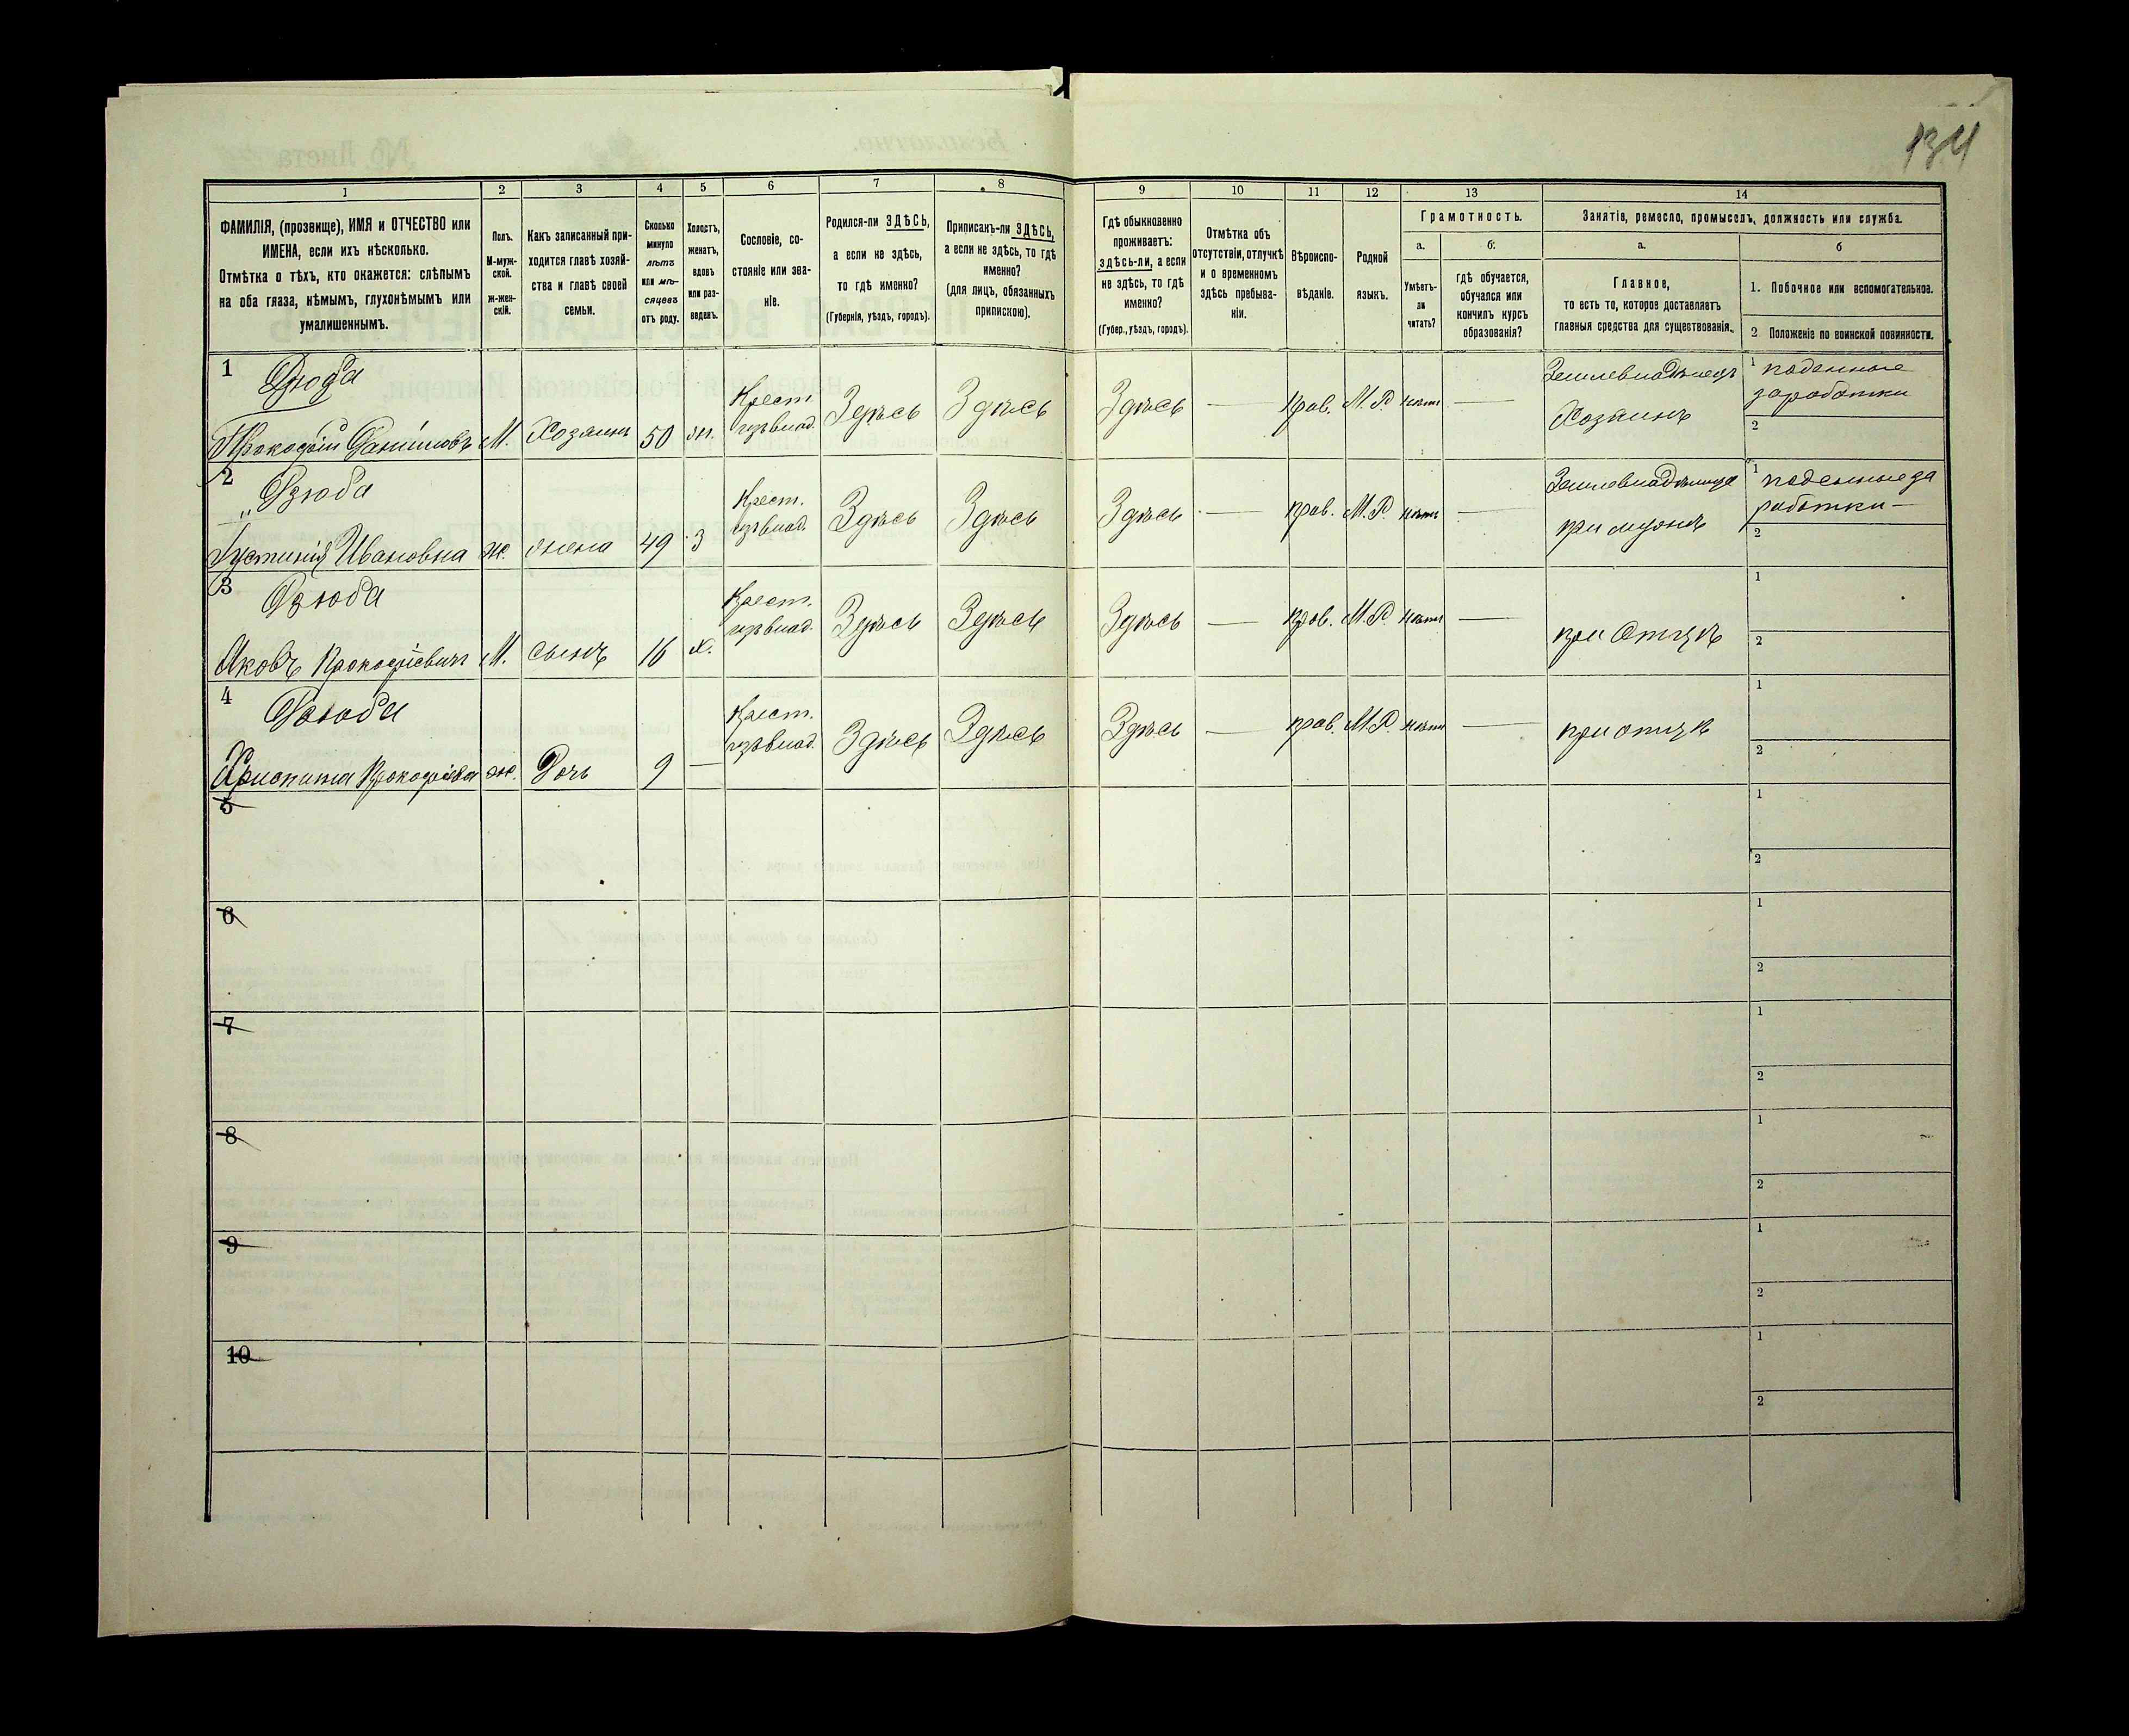 134
1 2 3 4 5 6 7 8 9 10 11 12 13 14
ФАМИЛІЯ, (прозвище), ИМЯ и ОТЧЕСТВО или
ИМЕНА, если ихъ нѣсколько.
Отмѣтка о тѣхъ, кто окажется: слѣпымъ
на оба глаза, нѣмымъ, глухонѣмымъ или
умалишеннымъ.
Полъ.
М-муж-
ской.
ж-жен-
скій.
Какъ записанный при-
ходится главѣ хозяй-
ства и главѣ своей
семьи.
Сколько
минуло
лѣтъ
или мѣ-
сяцевъ
отъ роду.
Холостъ,
женатъ,
вдовъ
или раз-
веденъ.
Сословіе, со-
стояніе или зва-
ніе.
Родился-ли ЗДѢСЬ,
а если не здѣсь,
то гдѣ именно?
(Губернія, уѣздъ, городъ).
Приписанъ-ли ЗДѢСЬ,
а если не здѣсь, то гдѣ
именно?
(для лицъ, обязанныхъ
припискою).
Гдѣ обыкновенно
проживаетъ:
здѣсь-ли, а если
не здѣсь, то гдѣ
именно?
(Губер., уѣздъ, городъ).
Отмѣтка объ
отсутствіи, отлучкѣ
и о временномъ
здѣсь пребыва-
ніи.
Вѣроиспо-
вѣданіе.
Родной
языкъ.
Грамотность.
а.
Умѣетъ-
ли
читать?
б.
гдѣ обучается,
обучался или
кончилъ курсъ
образованія?
Занятіе, ремесло, промыселъ, должность или служба.
а.
Главное,
то есть то, которое доставляетъ
главныя средства для существованія.
б
1. Побочное или вспомогательное.
2 Положеніе по воинской повинности.
1 Дзюба
Прокофій Даниловъ М. Хозяинъ 50 Крест. Здѣсь Здѣсь Здѣсь — прав. М.Р. нѣтъ —
Землевладѣлецъ
Хозяинъ
1 поденные
заработки
2
2 Дзюба
Іустинія Ивановна ж. жена 49 з Крест. Здѣсь Здѣсь Здѣсь — прав. М.Р. нѣтъ —
при мужѣ
1 поденные за
работки —
2
3 Дзюба
Яковъ Прокофіевичъ М. сынъ 16 х. Крест. Здѣсь Здѣсь Здѣсь — прав. М.Р. нѣтъ —
при Отцѣ
1
2
4 Дзюба
Прокофіева ж. Дочь 9 — Крест. Здѣсь Здѣсь Здѣсь — прав. М.Р. нѣтъ —
при отцѣ
1
2
5 1
2
6 1
2
7 1
2
8 1
2
9 1
2
10 1
2